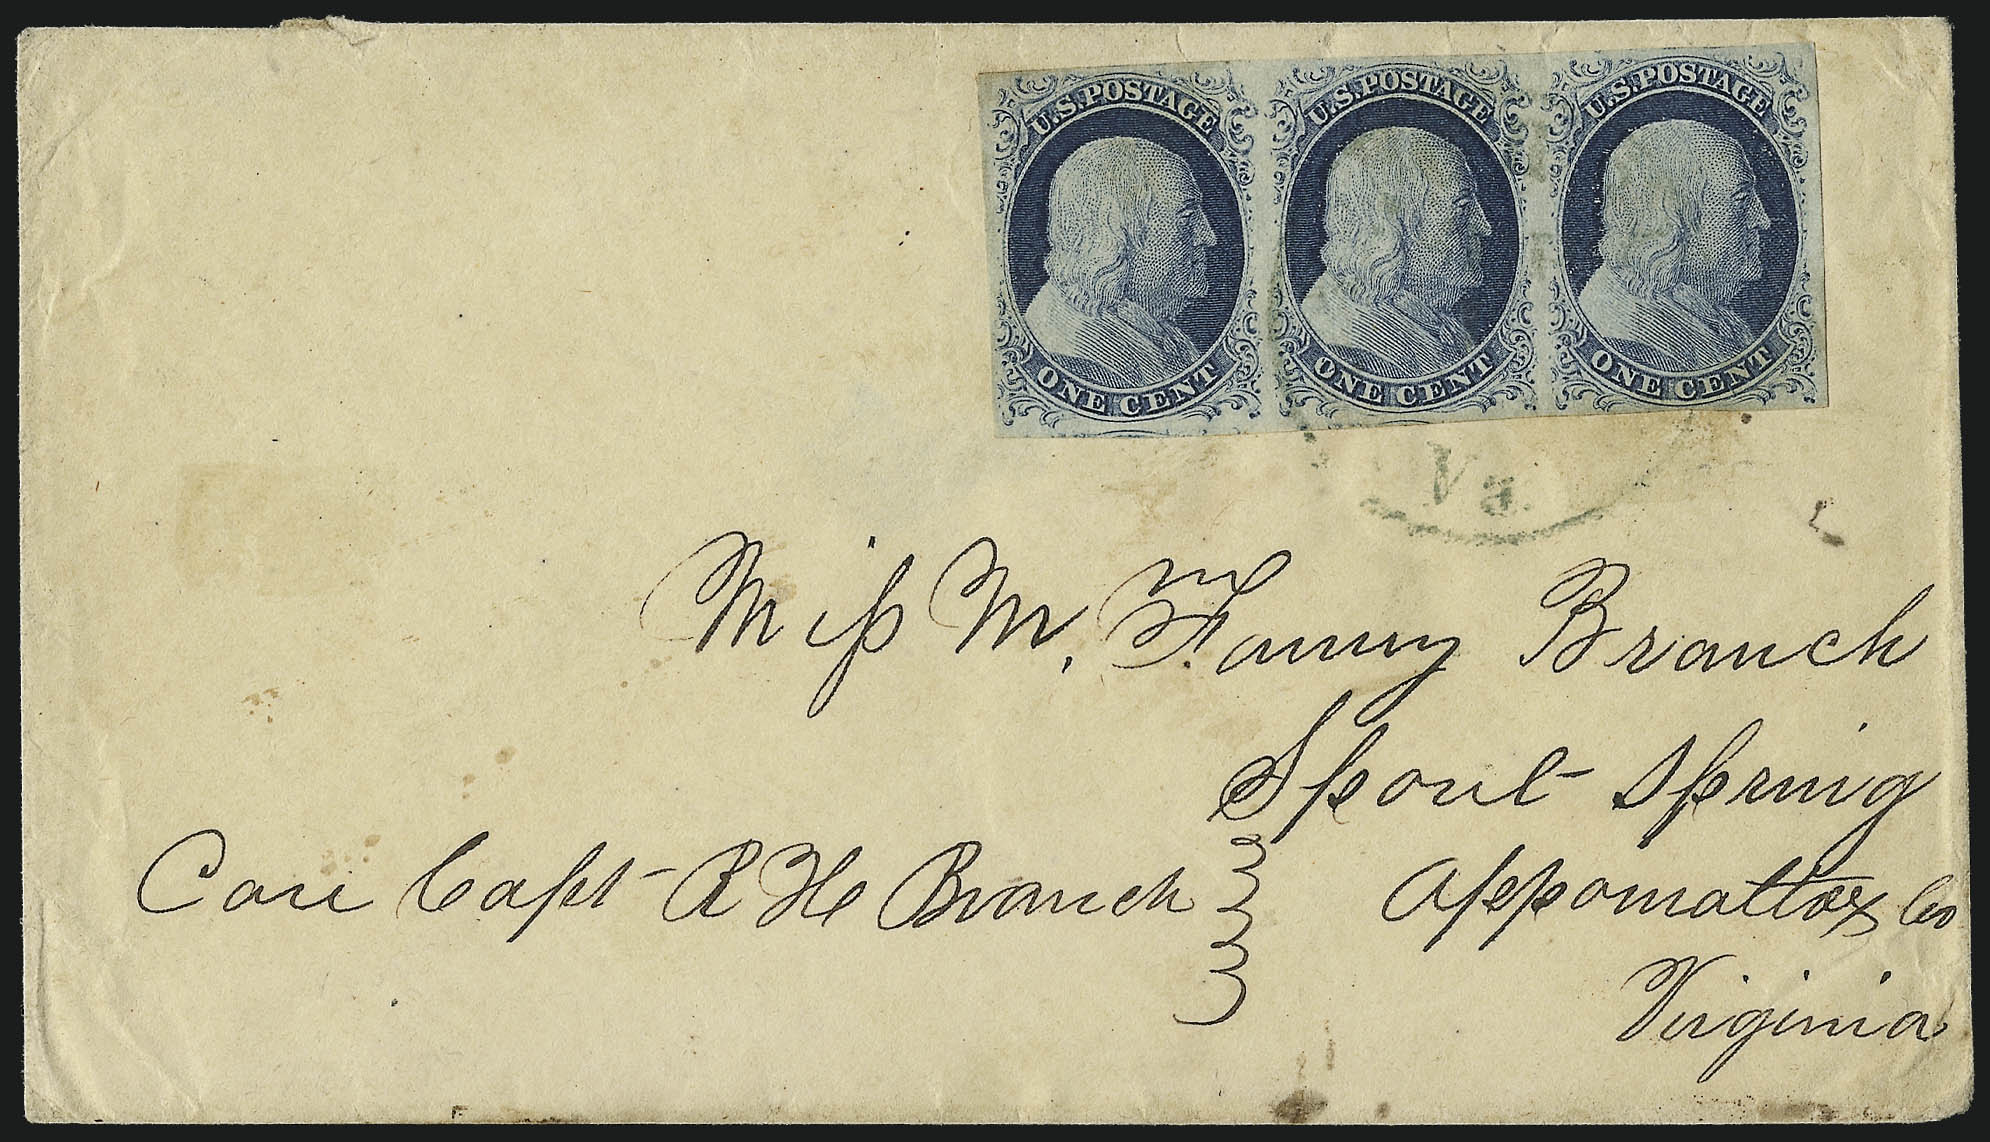 U.S. POSTAGE U.S. POSTAGE U.S. POSTAGE
ONE CENT ONE CENT ONE CENT
Va.
Miss M. Fanny Branch
Spout Spring
Care Capt R H Branch
Appomattox Co
Virginia